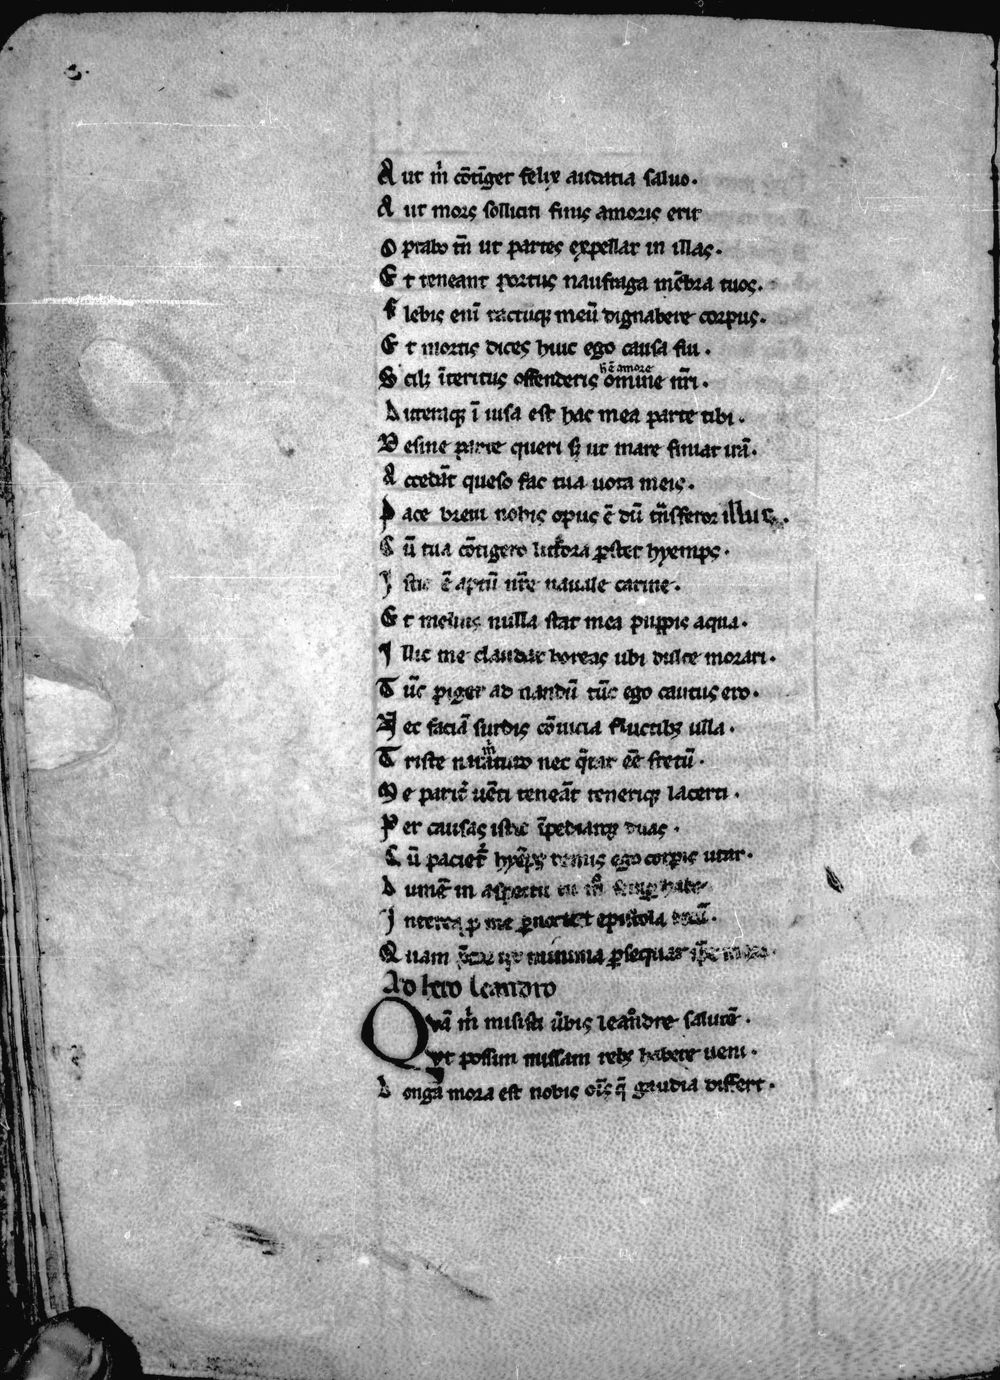 A ut m̅ cōtīget felix audatia saluo.
A ut mors solliciti finis amoris erit
O ptabo tn̄ ut partes expellar in illas.
E t teneant portus naufraga mēbra tuos.
F lebis enī tactūq; meū dignabere corpus.
E t mortis dices huic ego causa fui.
S cilz īteritus offenderis omine nr̄i.
h̄ ē amore
L iteraq; ī uisa est hac mea parte tibi.
D esine parce queri sz ut mare finiat irā.
A ccedāt queso fac tua uota meis.
P ace breui nobis opus ē dū trāsferor illuc.
C ū tua cōtigero littora pstet hyemps.
I stic ē aptū nr̄e nauale carine.
E t melius nulla stat mea puppis aqua.
I llic me claudat boreas ubi dulce morari.
T ūc piger ad nandū tūc ego cautus ero.
N ec faciā surdis cōuicia fluctibz ulla.
T riste nataturo nec q̄rar eē fretū.
M e parit̄ uēti teneāt teneriq; lacerti.
P er causas istic īpediarq; duas.
C ū paciet̄ hyēps remis ego corpis utar.
L umē in aspectu tu m̊ semp habe
I nterea p me pnoctet epistola tecū.
Q uam minima psequar
Ad hero leandro
Q uā m̅ misisti ūbis leandre salutē.
V t possim missam rebz habere ueni.
L onga mora est nobis oīs q̄ gaudia differt.